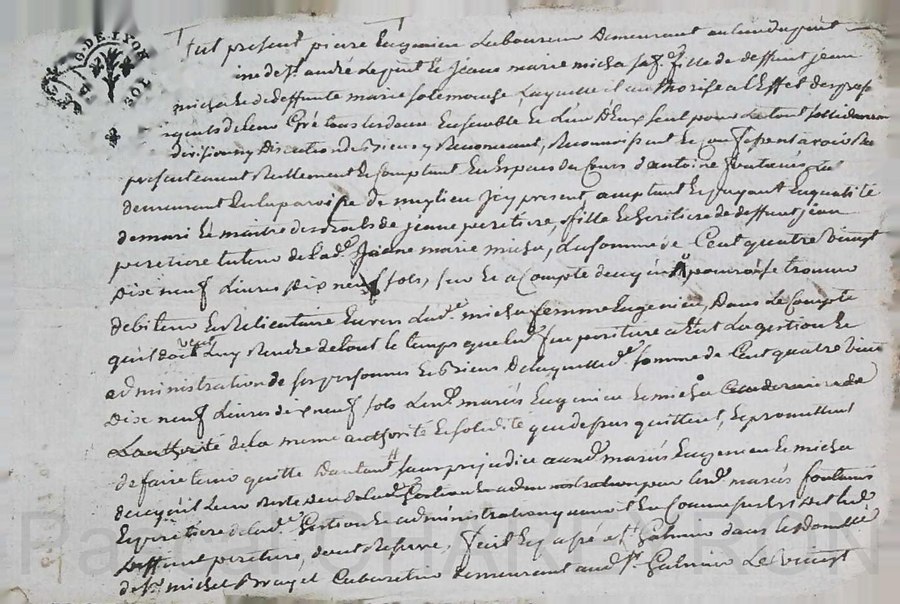 G. DE LYON
Fut présent pierre Eugenieu Laboureur Demeurant au lieu du pont
de St. andré Le puit Et Jeane marie micha sa fe. fille de deffunt jean
micha Et de deffunte marie Laquelle il authorise a l'Effet des pnts
de leur Gré tous les deux Ensemble Et L'un D'Eux seul pour Le tout sollidairemt
division ny Discution de Biens y Renonceant, Reconnoissent Et confessent avoir Reçu
presentement Reellement Et Comptant En Especes du Cours d'antoine fontanis
demeurant En La paroisse de muglieu Icy present, acceptant Et payant En qualité
de mari Et maitre des droits de jeane peretiere, fille Et heritiere de deffunt jean
peretiere tuteur de Lade. Jeane marie micha, La somme de Cent quatre Vingt
Dix neuf Livres Dix neuf sols, sur Et a Compte de ce qu'il pourra se trouver
debiteur Et Reliquataire Envers Lade. micha femme Eugenieu, Dans Le Compte
qu'il doit Luy Rendre de tout le temps que led. feu peretiere a Eut La gestion Et
administration de ses personnes Et Biens De laquelle de. somme de Cent quatre Vint
Dix neuf Livres dix neuf sols Lesd. mariés Eugenieu Et micha
L'authorité de la meme authorité Et solidité que dessus quittent, Et promettent
de faire tenir quitte D'autant sans prejudice auxd. mariés Eugenieu Et micha
de ce qu'il Leur Reste Deu de Lad. Gestion Et administration pour Lesd. mariés fontanis
Et peretiere de lade. Gestion Et administration
deffunt peretiere, dont Reserve, fait Et passé a St. Galmier dans Le Domicille
de Sr. michel Bruyet Cabaretier demeurant aud. St. Galmier Le vingt